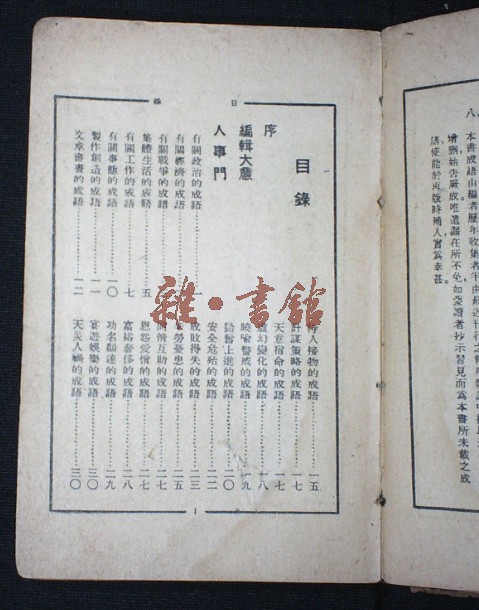 八、本書成語由編者歷年收集者
增刪始告厥成唯遺漏在所不免如蒙讀者抄示習見而爲本書所未載之成
語使能於再版時補入實爲幸甚。
目錄
目錄
序
編輯大意
人事門
有關政治的成語
有關經濟的成語
有關戰爭的成語
集體生活的成語……五
有關工作的成語……七
有關事態的成語……一〇
製作創造的成語……一一
文章書畫的成語……一二
待人接物的成語……一五
計謀策略的成語……一七
天意宿命的成語……一七
變幻變化的成語……一八
曉喻警戒的成語……一九
勤奮上進的成語……二〇
安全危殆的成語……二二
成敗得失的成語……二三
勞憂患的成語……二五
同情互助的成語……二七
恩怨愛憎的成語……二七
富裕奢侈的成語……二八
功名顯達的成語……二九
宴遊娛樂的成語……三〇
天災人禍的成語……三〇
1
雜·書館